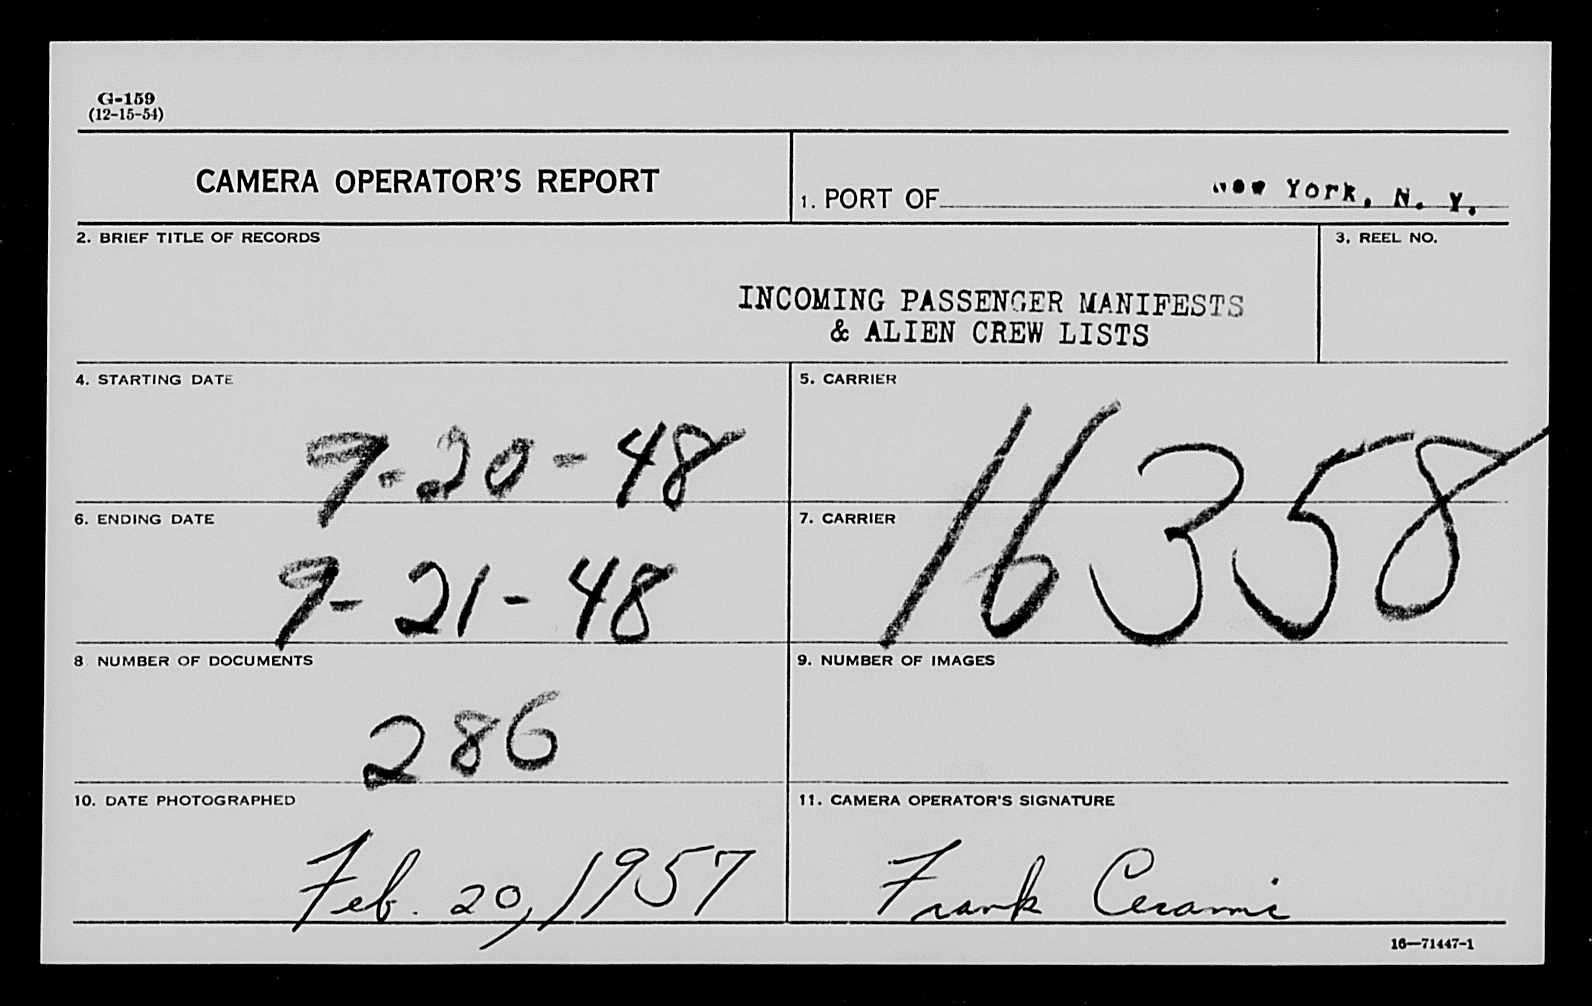 G-159
(12-15-54)
CAMERA OPERATOR'S REPORT
1. PORT OF New York, N. Y.
2. BRIEF TITLE OF RECORDS
3. REEL NO.
INCOMING PASSENGER MANIFESTS
& ALIEN CREW LISTS
4. STARTING DATE
9-20-48
5. CARRIER
16358
6. ENDING DATE
9-21-48
7. CARRIER
8 NUMBER OF DOCUMENTS
286
9. NUMBER OF IMAGES
10. DATE PHOTOGRAPHED
Feb. 20, 1957
11. CAMERA OPERATOR'S SIGNATURE
Frank Cerami
16—71447-1